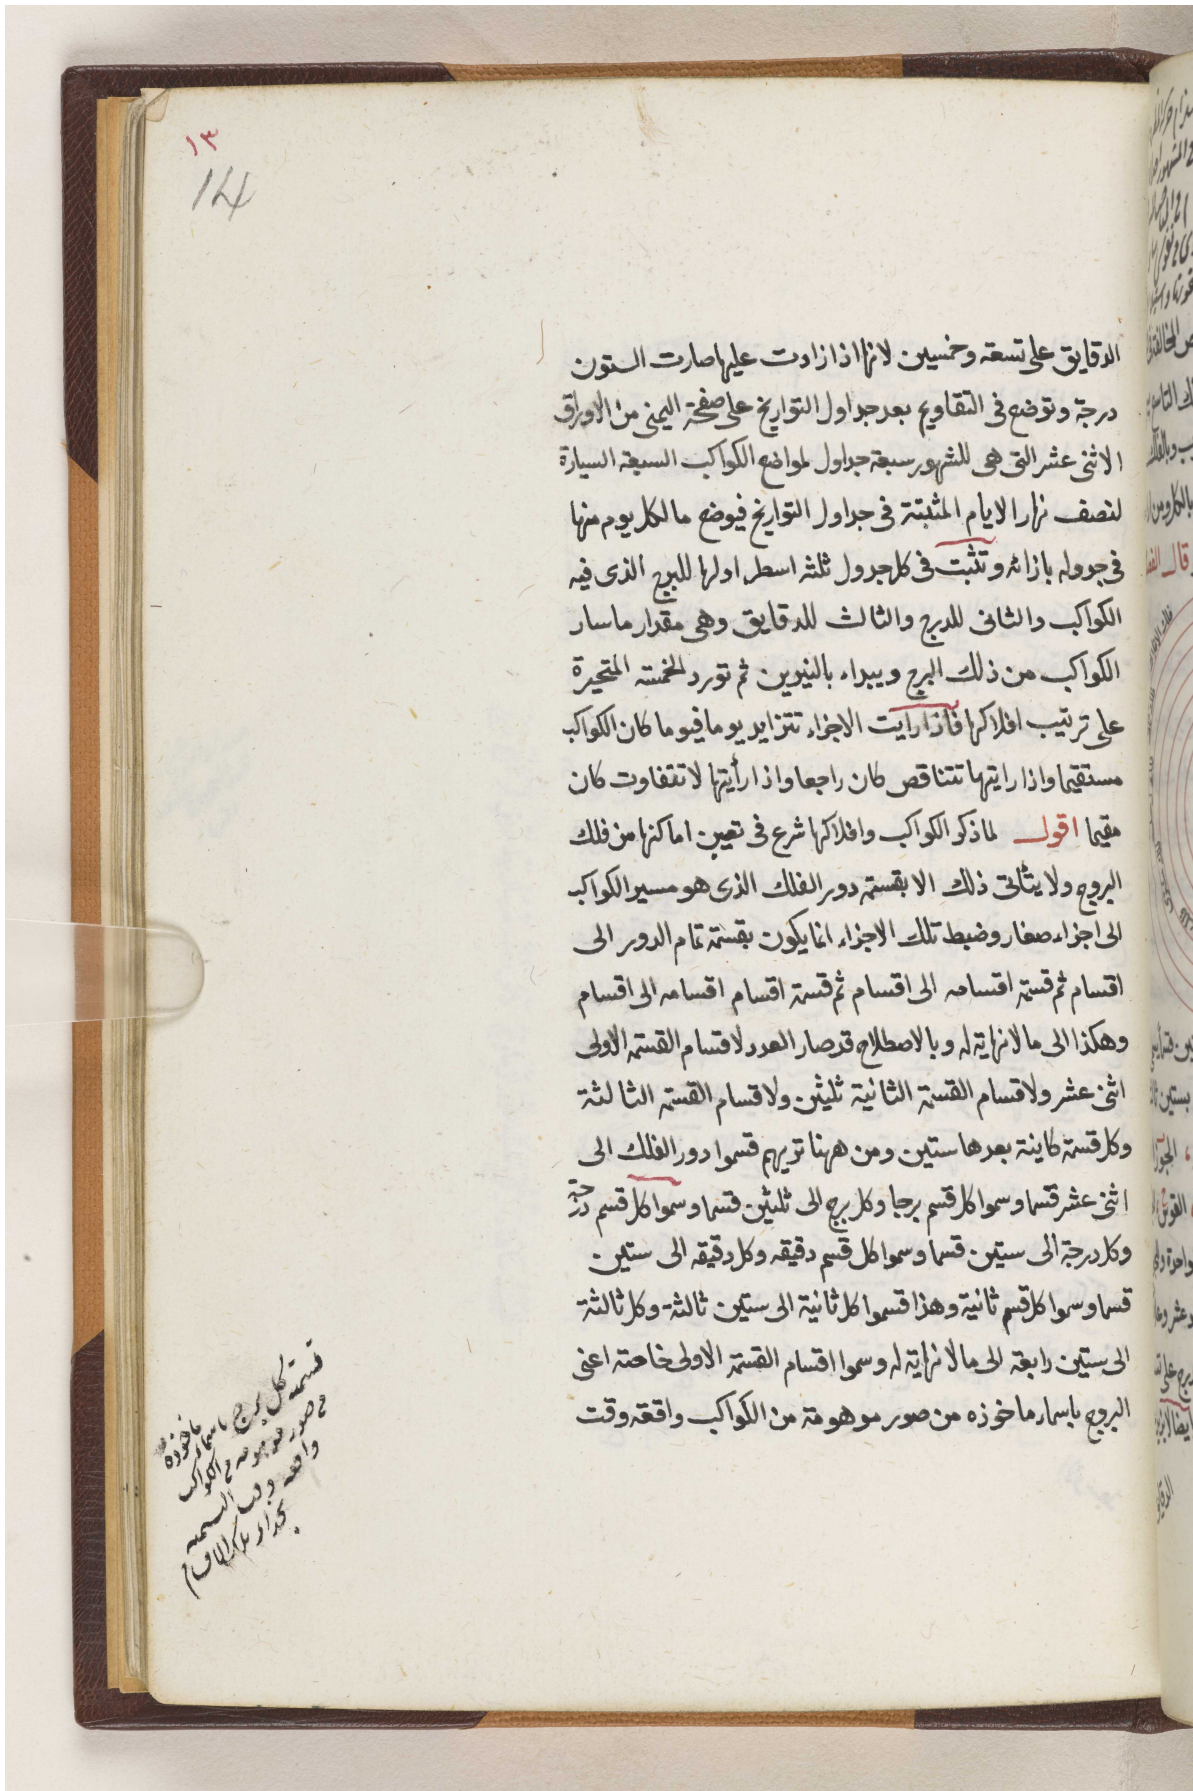 ١٣
14
الدقايق على تسعة وخمسين لانها اذا زادت عليها صارت الستون
درجة وتوضع فى التقاويم بعد جداول التواريخ على صفحة اليمنى من الاوراق
الاثنى عشر التى هى للشهور سبعة جداول لمواضع الكواكب السبعة السيارة
لنصف نهار الايام المثبتة فى جداول التواريخ فيوضع ما لكل يوم منها
فى جدوله بازائه وتثبت فى كل جدول ثلثة اسطر اولها للبرج الذى فيه
الكواكب والثانى للدرج والثالث للدقايق وهى مقدار ما سار
الكواكب من ذلك البرج ويبداء بالنيرين ثم تورد الخمسة المتحيرة
على ترتيب افلاكها فاذا رايت الاجزاء تتزايد يوما فيوما كان الكواكب
مستقيما واذا رايتها تتناقص كان راجعا واذا رأيتها لا تتفاوت كان
مقيما اقول لما ذكر الكواكب وافلاكها شرع فى تعيين اماكنها من فلك
البروج ولا يتأتى ذلك الا بقسمة دور الفلك الذى هو مسير الكواكب
الى اجزاء صغار وضبط تلك الاجزاء انما يكون بقسمة تمام الدور الى
اقسام ثم قسمة اقسامه الى اقسام ثم قسمة اقسام اقسامه الى اقسام
وهكذا الى ما لا نهاية له وبالاصطلاح قد صار العدد لاقسام القسمة الاولى
اثنى عشر ولاقسام القسمة الثانية ثلثين ولاقسام القسمة الثالثة
وكل قسمة كاينة بعدها ستين ومن ههنا تريهم قسموا دور الفلك الى
اثنى عشر قسما وسموا كل قسم برجا وكل برج الى ثلثين قسما وسموا كل قسم درجة
وكل درجة الى ستين قسما وسموا كل قسم دقيقه وكل دقيقه الى ستين
قسما وسموا كل قسم ثانية وهذا قسموا كل ثانية الى ستين ثالثة وكل ثالثة
الى ستين رابعة الى ما لا نهاية له وسموا اقسام القسمة الاولى خاصة اعنى
البروج باسماء ماخوذه من صور موهومة من الكواكب واقعه وقت
قسمته كل برج باسماء ماخوذة
من صور موهومه من الكواكب
واقعه وقت التسمية
بحذاء تلك الاقسام